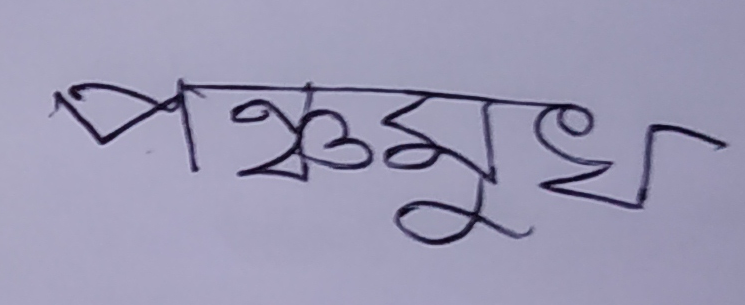 পঞ্চমুখ